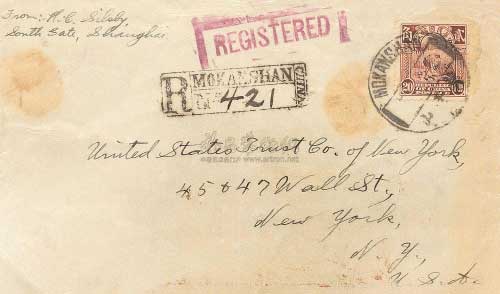 From: H. C. Silsby
South Gate, Shanghai
REGISTERED
R MOKANSHAN CHINA
No. 421
MOKANSHAN
20
United States Trust Co. of New York,
45 & 47 Wall St.,
New York,
N. Y.,
U. S. A.
www.artron.net